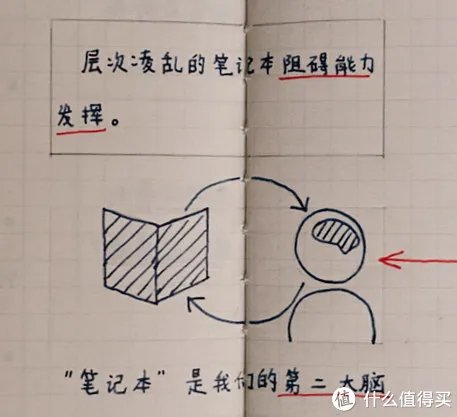 层次凌乱的笔记本阻碍能力
发挥。
"笔记本"是我们的第二大脑
值 什么值得买